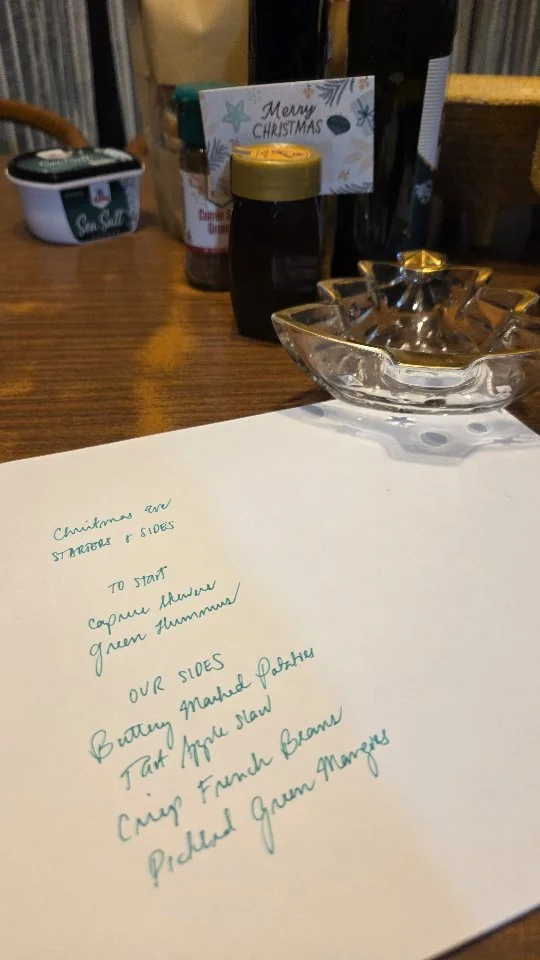 Merry
CHRISTMAS
Sea Salt
Cumin
Christmas eve
STARTERS & SIDES
TO START
caprese skewere
green Hummus
OUR SIDES
Buttery Mashed Potatoes
Tart Apple slaw
Crisp French Beans
Pickled Green Mangoes